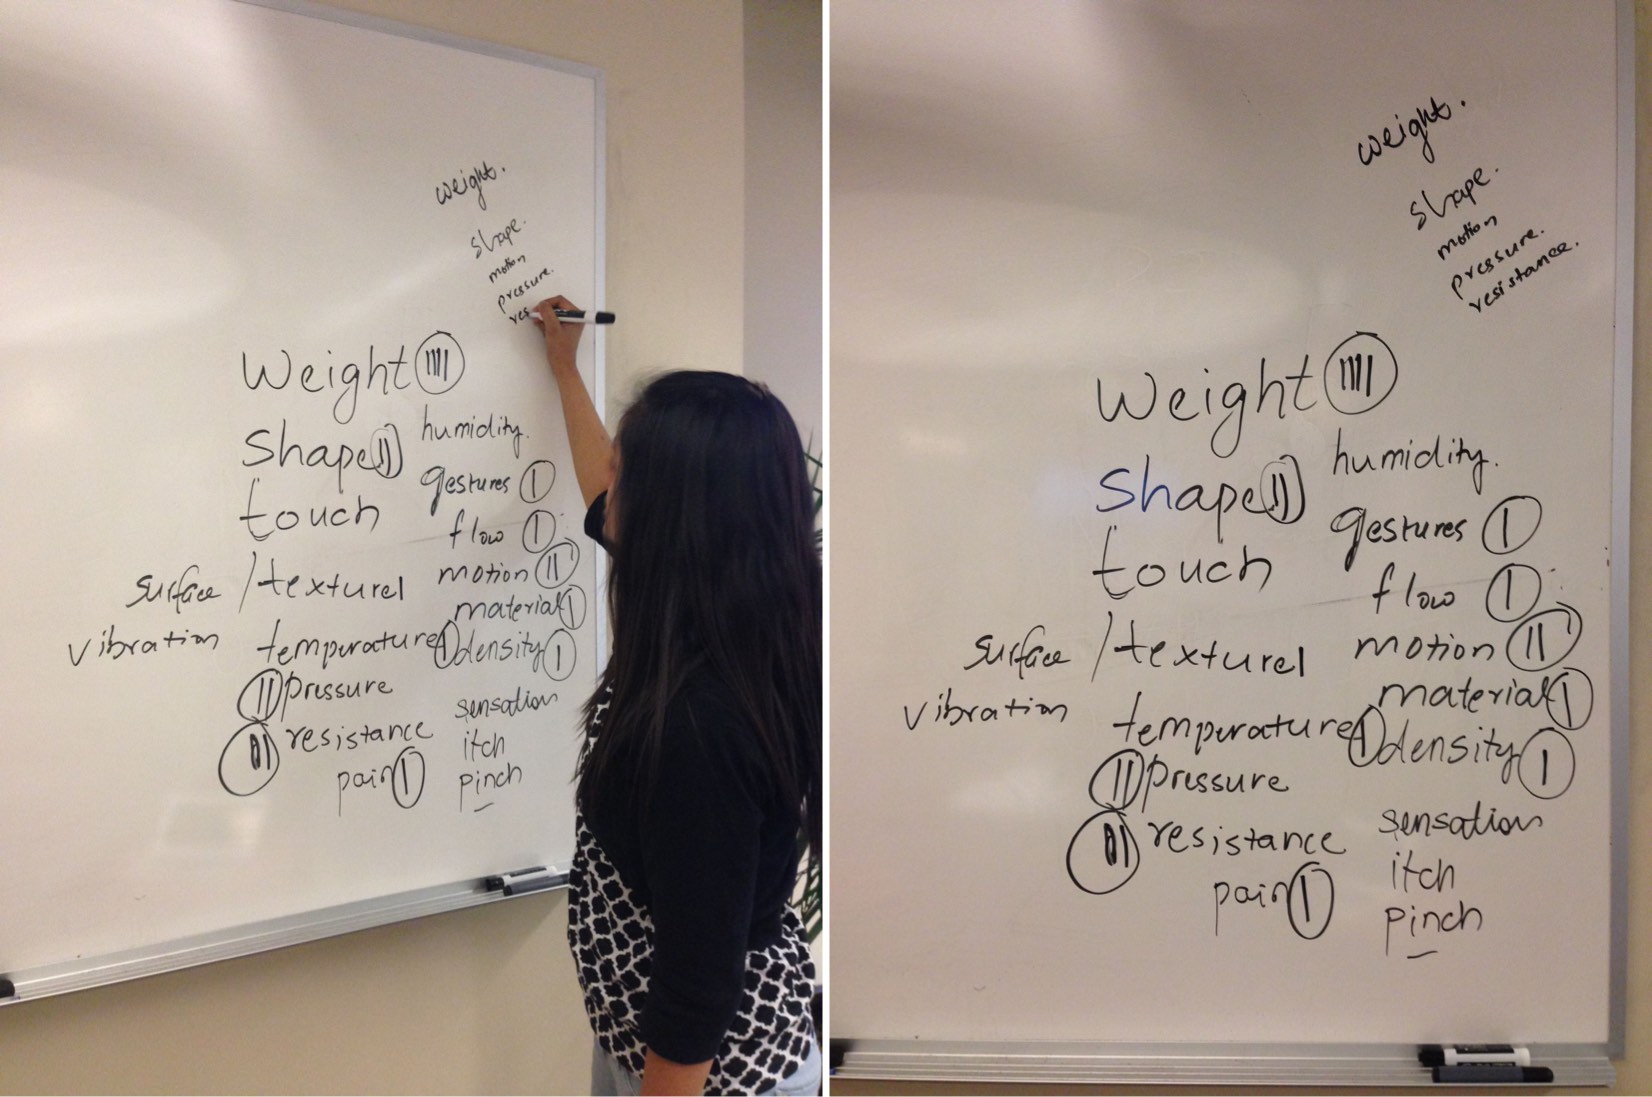 weight.
shape.
motion
pressure.
res
Weight
Shape
touch
surface / texture
vibration
temperature
pressure
resistance
pain
humidity.
gestures
flow
motion
material
density
sensation
itch
pinch
weight.
shape.
motion
pressure.
resistance.
Weight
Shape
touch
surface / texture
vibration
temperature
pressure
resistance
pain
humidity.
gestures
flow
motion
material
density
sensation
itch
pinch